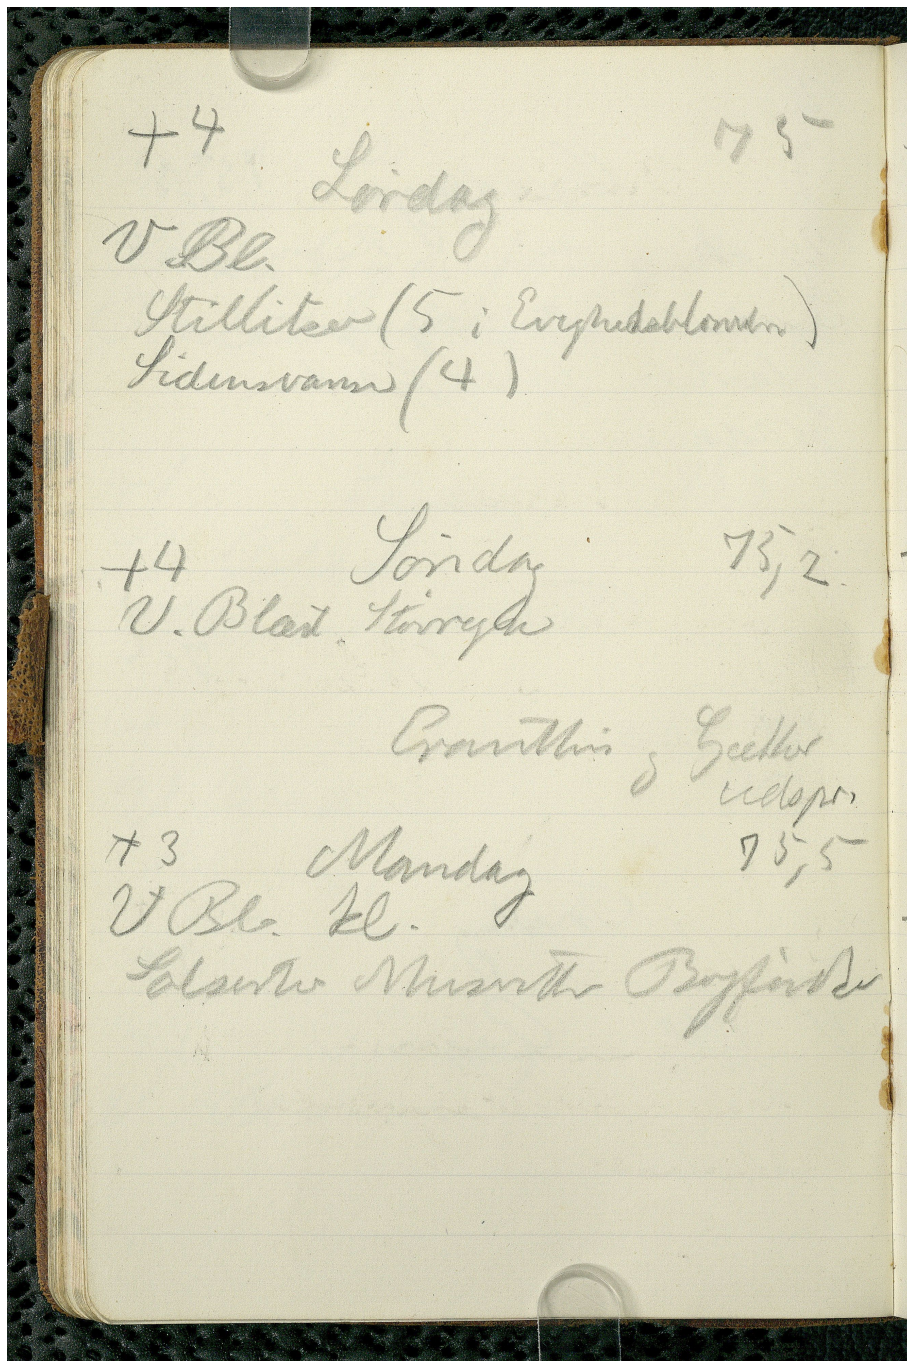 +4 75
Lørdag
V Bl.
Stillitser (5 i Evighedsblomster)
Sidensvanser (4)
+4 Søndag 75,2
V. Blæst
Eranthis og Gækker
udspr.
+3 Mandag 75,5
V Bl. kl.
Solsorter Musvitter Bogfinker